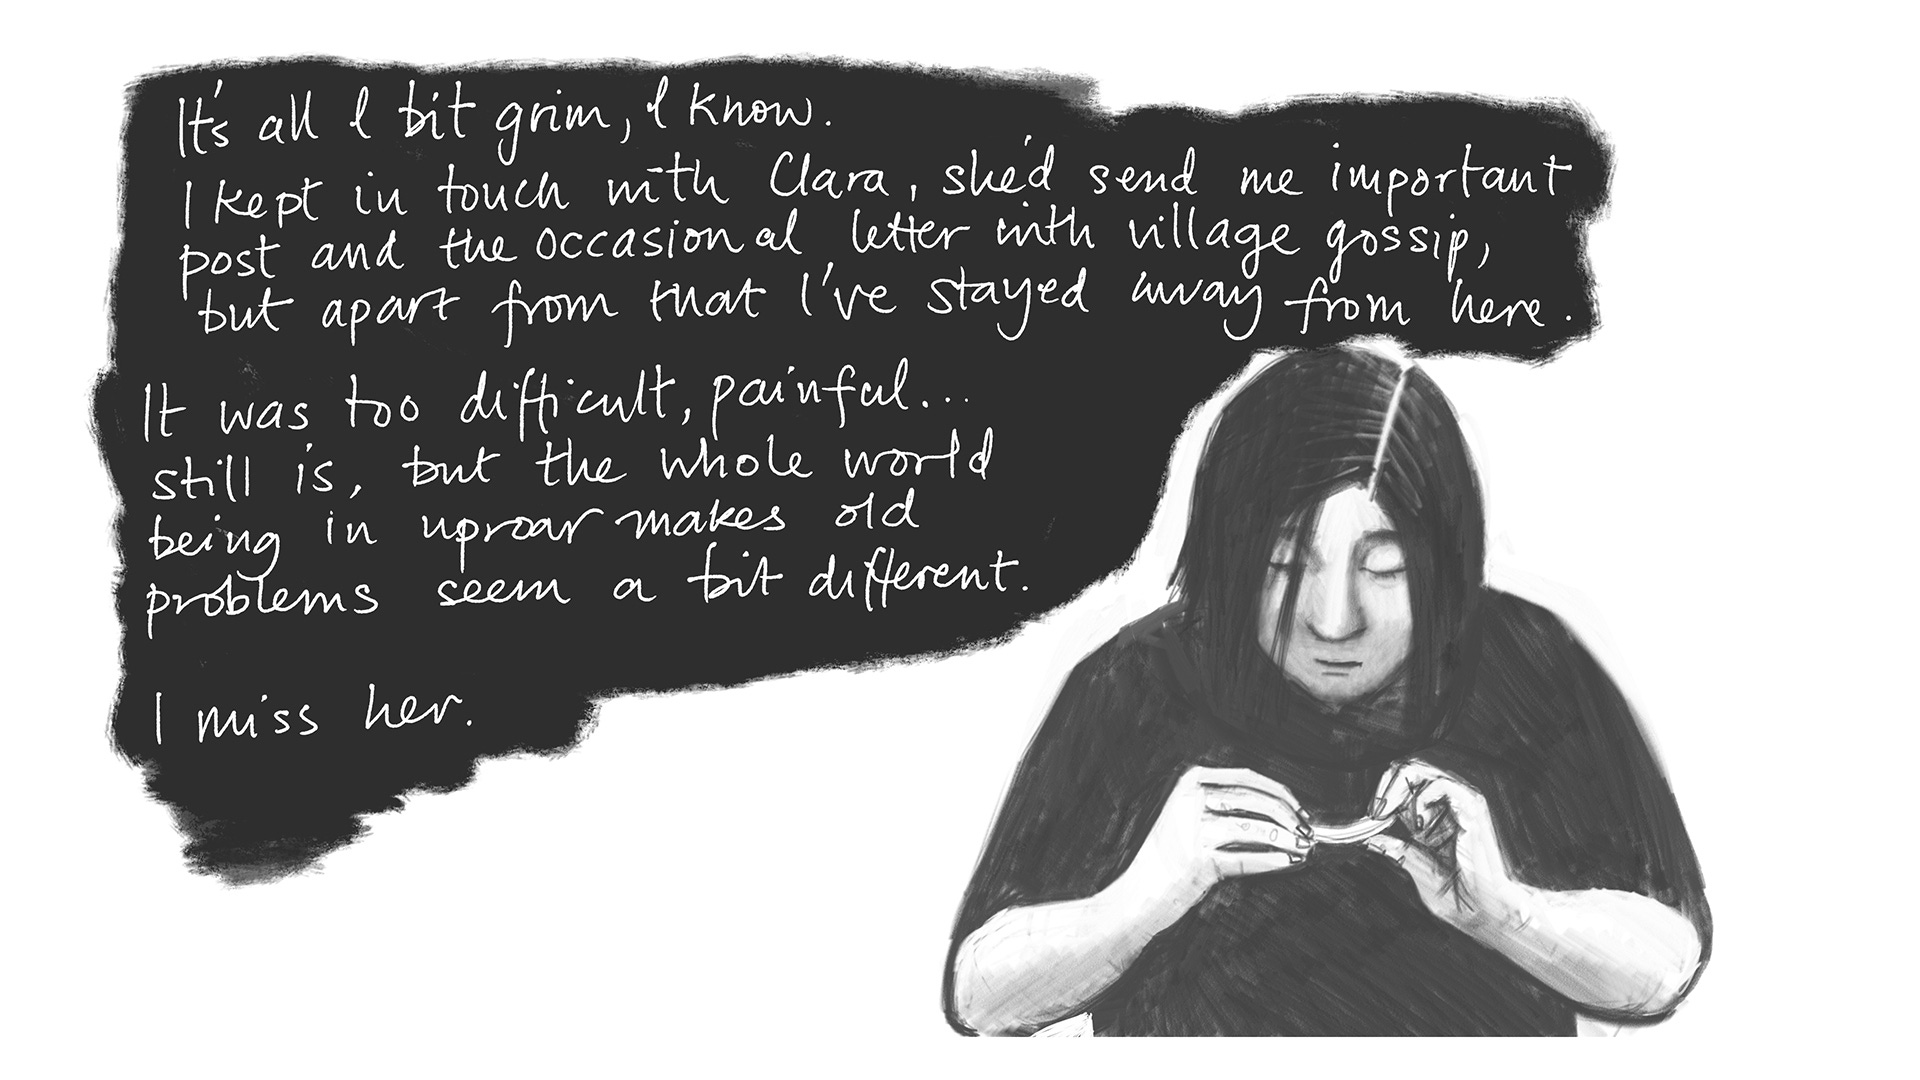 It's all a bit grim, I know.
I kept in touch with Clara, she'd send me important
post and the occasional letter with village gossip,
but apart from that I've stayed away from here.
It was too difficult, painful...
still is, but the whole world
being in uproar makes old
problems seem a bit different.
I miss her.